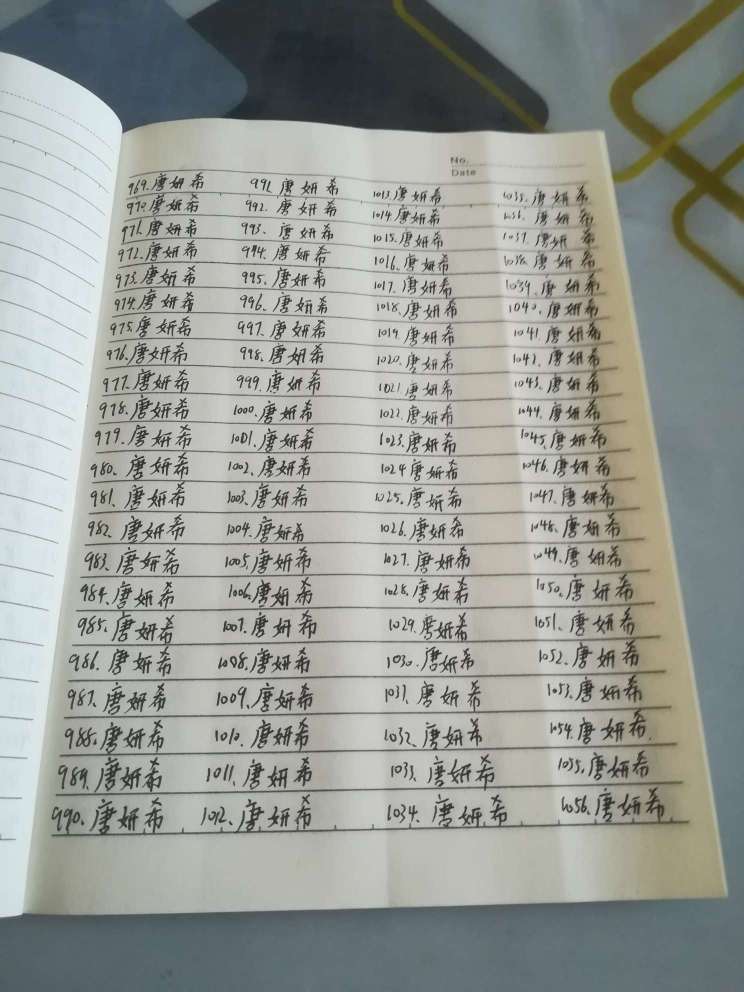 No.
Date
969.唐妍希 991.唐妍希 1013.唐妍希 1035.唐妍希
970.唐妍希 992.唐妍希 1014.唐妍希 1036.唐妍希
971.唐妍希 993.唐妍希 1015.唐妍希 1037.唐妍希
972.唐妍希 994.唐妍希 1016.唐妍希 1038.唐妍希
973.唐妍希 995.唐妍希 1017.唐妍希 1039.唐妍希
974.唐妍希 996.唐妍希 1018.唐妍希 1040.唐妍希
975.唐妍希 997.唐妍希 1019.唐妍希 1041.唐妍希
976.唐妍希 998.唐妍希 1020.唐妍希 1042.唐妍希
977.唐妍希 999.唐妍希 1021.唐妍希 1043.唐妍希
978.唐妍希 1000.唐妍希 1022.唐妍希 1044.唐妍希
979.唐妍希 1001.唐妍希 1023.唐妍希 1045.唐妍希
980.唐妍希 1002.唐妍希 1024唐妍希 1046.唐妍希
981.唐妍希 1003.唐妍希 1025.唐妍希 1047.唐妍希
982.唐妍希 1004.唐妍希 1026.唐妍希 1048.唐妍希
983.唐妍希 1005.唐妍希 1027.唐妍希 1049.唐妍希
984.唐妍希 1006.唐妍希 1028.唐妍希 1050.唐妍希
985.唐妍希 1007.唐妍希 1029.唐妍希 1051.唐妍希
986.唐妍希 1008.唐妍希 1030.唐妍希 1052.唐妍希
987.唐妍希 1009.唐妍希 1031.唐妍希 1053.唐妍希
988.唐妍希 1010.唐妍希 1032.唐妍希 1054.唐妍希
989.唐妍希 1011.唐妍希 1033.唐妍希 1055.唐妍希
990.唐妍希 1012.唐妍希 1034.唐妍希 1056.唐妍希